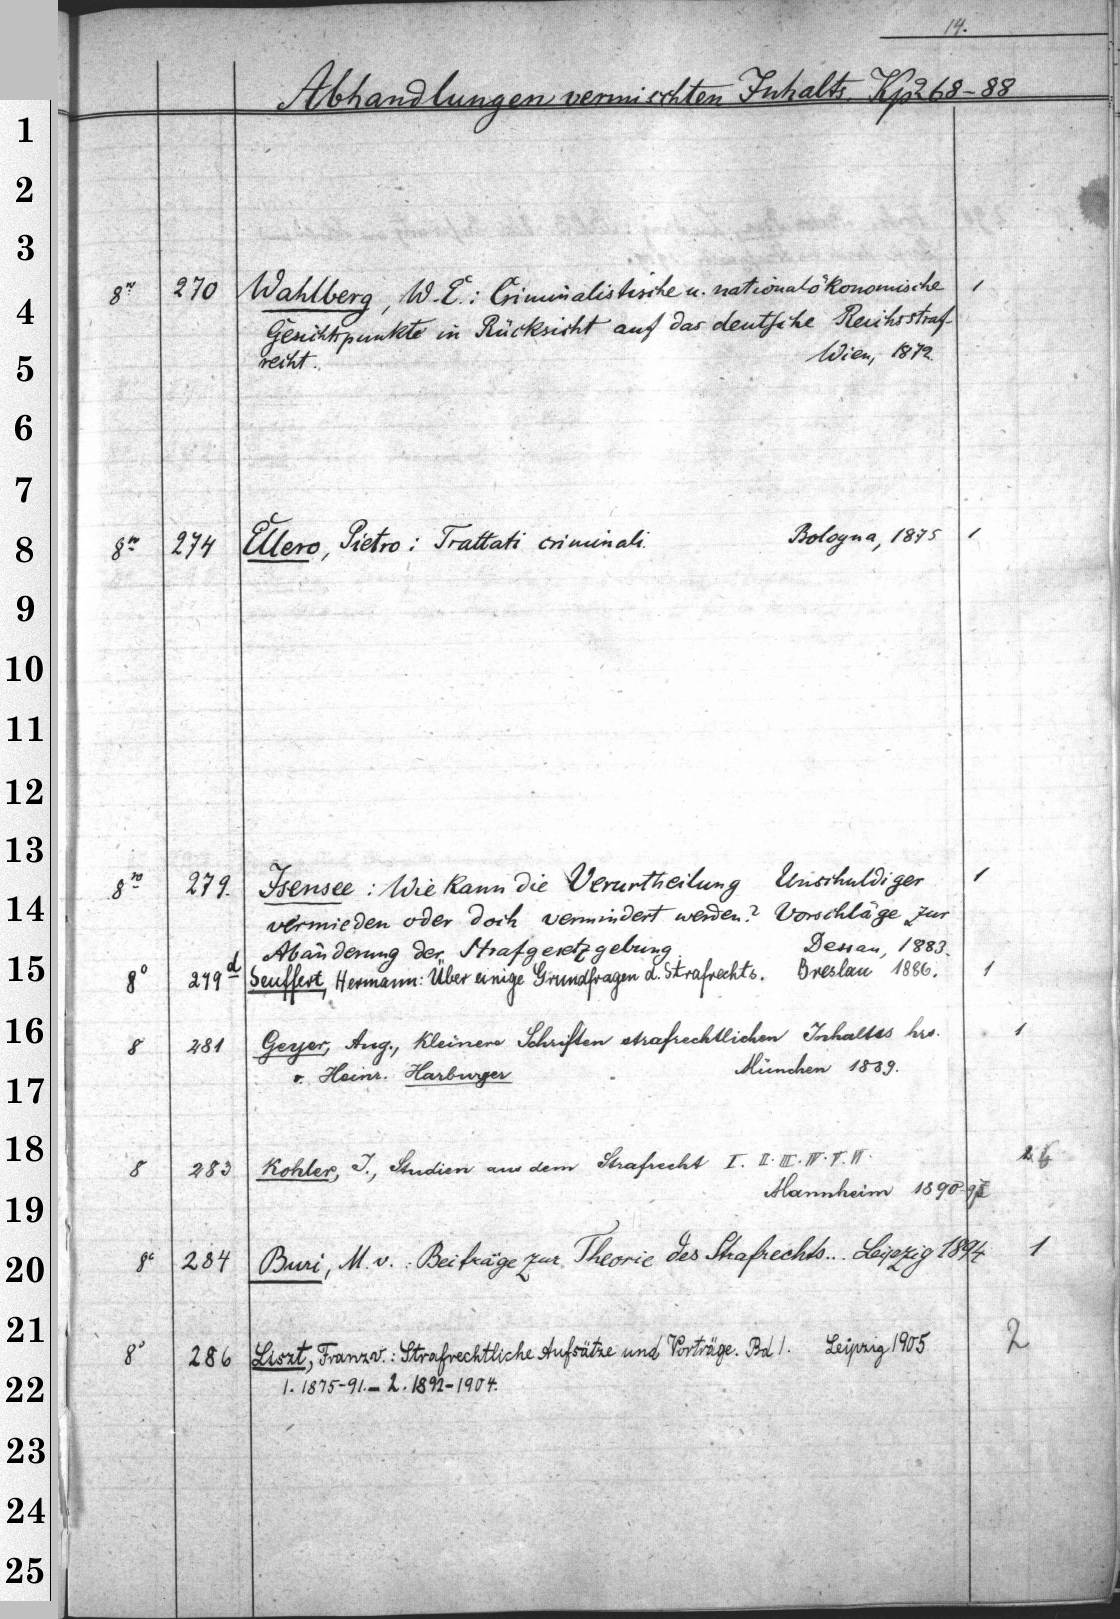 14.
Abhandlungen vermischten Inhalts. Kp 268-88
1
2
3
8vo 270 Wahlberg, W. E.: Criminalistische u. nationalökonomische 1
4
Gesichtspunkte in Rücksicht auf das deutsche Reichsstraf-
5
recht. Wien, 1872.
6
7
8
8vo 274 Ellero, Pietro: Trattati criminali. Bologna, 1875 1
9
10
11
12
13
8vo 279. Isensee: Wie kann die Verurtheilung Unschuldiger 1
14
vermieden oder doch vermindert werden? Vorschläge zur
Abänderung der Strafgesetzgebung. Dessau, 1883.
15
8o 279d Seuffert, Hermann: Über einige Grundfragen d. Strafrechts. Breslau 1886. 1
16
8 281 Geyer, Aug., Kleinere Schriften strafrechtlichen Inhaltes hrs. 1
v. Heinr. Harburger München 1889.
17
18
8 283 Kohler, J., Studien aus dem Strafrecht I. II. III. IV. V. VI. 6
Mannheim 1890-97
19
8o 284 Buri, M. v.: Beiträge zur Theorie des Strafrechts.. Leipzig 1894 1
20
21
8o 286 Liszt, Franz v.: Strafrechtliche Aufsätze und Vorträge. Bd 1. Leipzig 1905 2
22
1. 1875-91. - 2. 1892-1904.
23
24
25